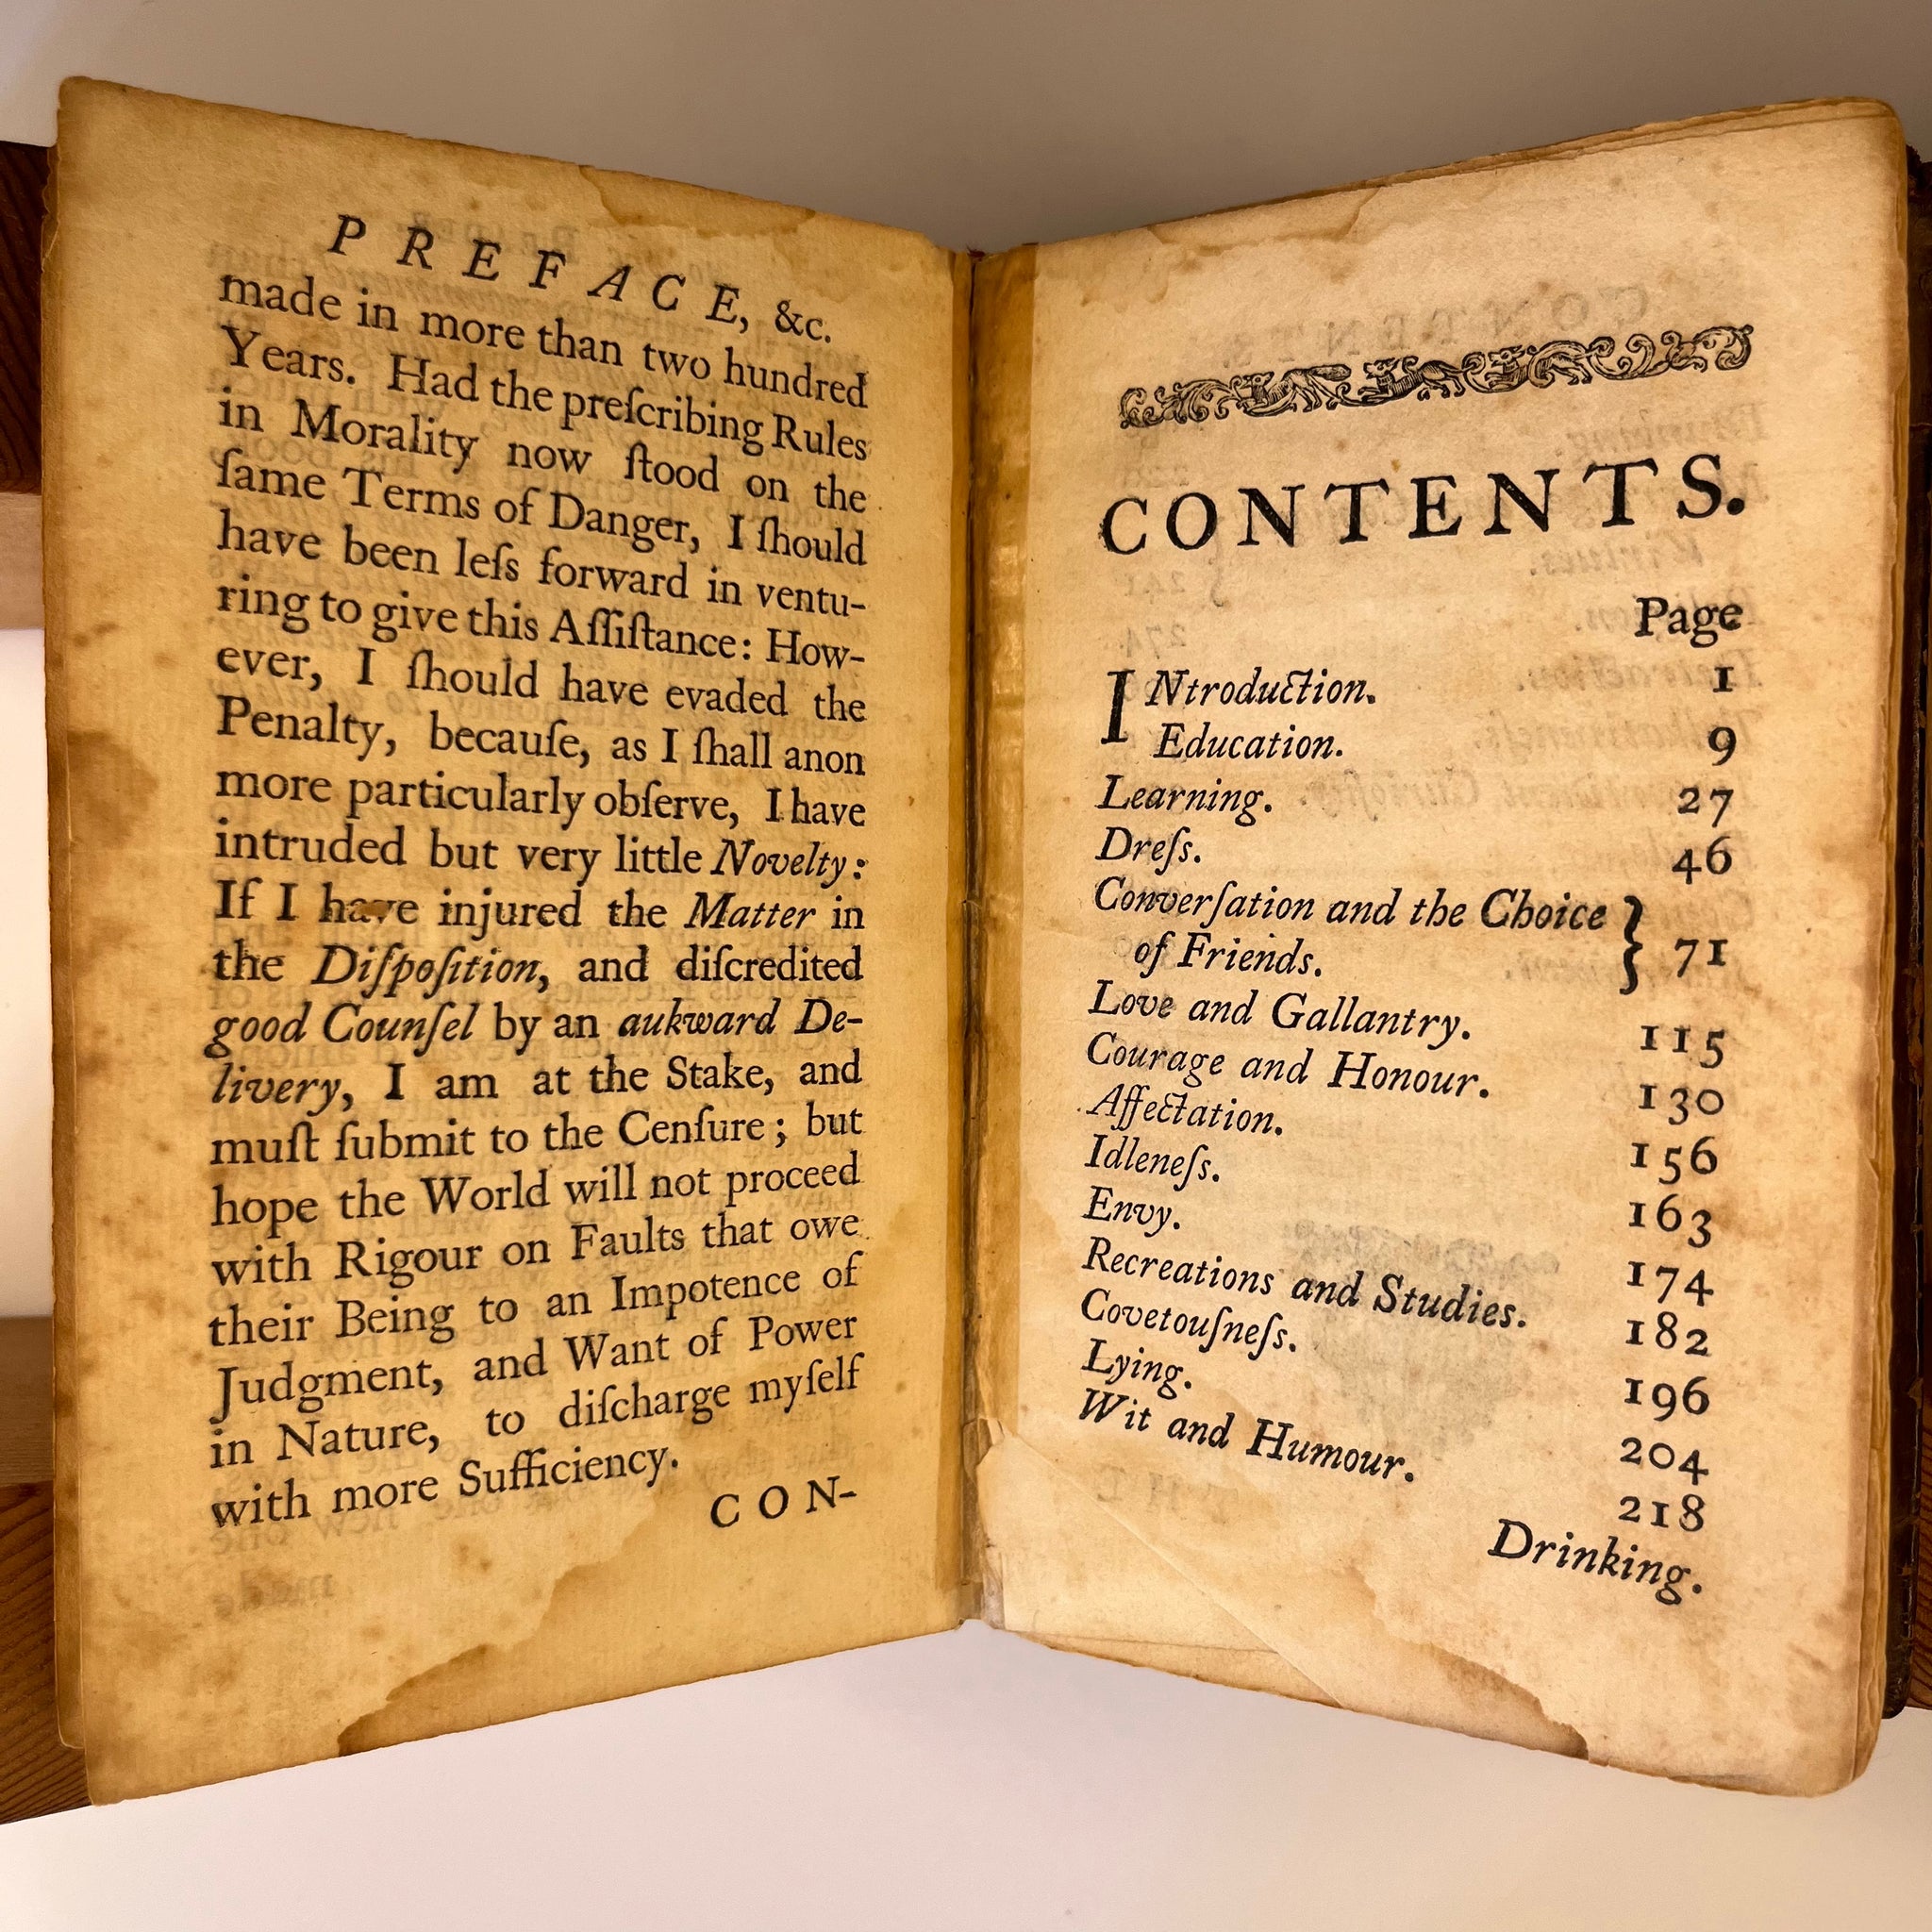 PREFACE, &c.
made in more than two hundred
Years. Had the preſcribing Rules
in Morality now ſtood on the
ſame Terms of Danger, I ſhould
have been leſs forward in ventu-
ring to give this Aſſiſtance: How-
ever, I ſhould have evaded the
Penalty, becauſe, as I ſhall anon
more particularly obſerve, I have
intruded but very little Novelty:
If I have injured the Matter in
the Diſpoſition, and diſcredited
good Counſel by an aukward De-
livery, I am at the Stake, and
muſt ſubmit to the Cenſure; but
hope the World will not proceed
with Rigour on Faults that owe
their Being to an Impotence of
Judgment, and Want of Power
in Nature, to diſcharge myſelf
with more Sufficiency.
CON-
CONTENTS.
Page
INtroduction. 1
Education. 9
Learning. 27
Dreſs. 46
Converſation and the Choice
of Friends. } 71
Love and Gallantry. 115
Courage and Honour. 130
Affectation. 156
Idleneſs. 163
Envy. 174
Recreations and Studies. 182
Covetouſneſs. 196
Lying. 204
Wit and Humour. 218
Drinking.